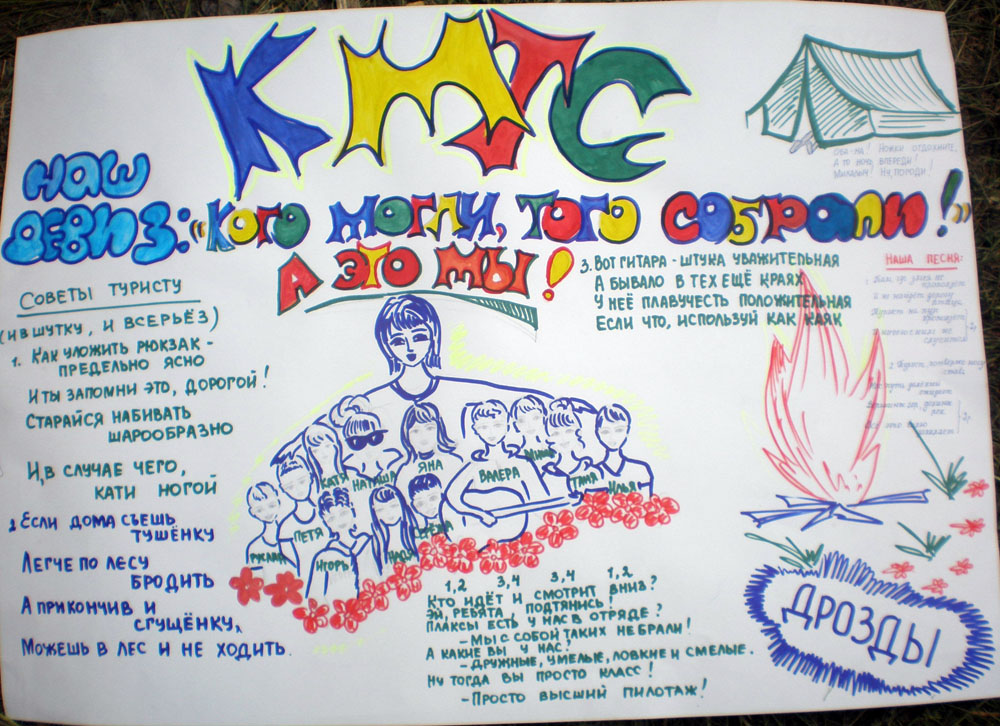 КМТС
НАШ
ДЕВИЗ:
"КОГО МОГЛИ, ТОГО СОБРАЛИ!"
А ЭТО МЫ!
НОЖКИ ОТДОХНИТЕ,
А ТО ВНОВЬ ВПЕРЕДИ!
НУ, ПОГОДИ!
СОВЕТЫ ТУРИСТУ
(И В ШУТКУ, И ВСЕРЬЁЗ)
1. КАК УЛОЖИТЬ РЮКЗАК -
ПРЕДЕЛЬНО ЯСНО
И ТЫ ЗАПОМНИ ЭТО, ДОРОГОЙ!
СТАРАЙСЯ НАБИВАТЬ
ШАРООБРАЗНО
И, В СЛУЧАЕ ЧЕГО,
КАТИ НОГОЙ
2. ЕСЛИ ДОМА СЪЕШЬ
ТУШЁНКУ
ЛЕГЧЕ ПО ЛЕСУ
БРОДИТЬ
А ПРИКОНЧИВ И
СГУЩЁНКУ,
МОЖЕШЬ В ЛЕС И НЕ ХОДИТЬ.
3. ВОТ ГИТАРА - ШТУКА УВАЖИТЕЛЬНАЯ
А БЫВАЛО В ТЕХ ЕЩЁ КРАЯХ
У НЕЁ ПЛАВУЧЕСТЬ ПОЛОЖИТЕЛЬНАЯ
ЕСЛИ ЧТО, ИСПОЛЬЗУЙ КАК КАЯК
НАША ПЕСНЯ:
КАТЯ
НАТАША
ЯНА
ВАЛЕРА
ТАНЯ
ИЛЬЯ
РУСЛАН
ПЕТЯ
ИГОРЬ
НАСТЯ
СЕРЁЖА
1,2 3,4 3,4 1,2
КТО ИДЁТ И СМОТРИТ ВНИЗ?
ЭЙ, РЕБЯТА, ПОДТЯНИСЬ!
ПЛАКСЫ ЕСТЬ У НАС В ОТРЯДЕ?
- МЫ С СОБОЙ ТАКИХ НЕ БРАЛИ!
А КАКИЕ ВЫ У НАС?
- ДРУЖНЫЕ, УМЕЛЫЕ, ЛОВКИЕ И СМЕЛЫЕ.
НУ ТОГДА ВЫ ПРОСТО КЛАСС!
- ПРОСТО ВЫСШИЙ ПИЛОТАЖ!
ДРОЗДЫ